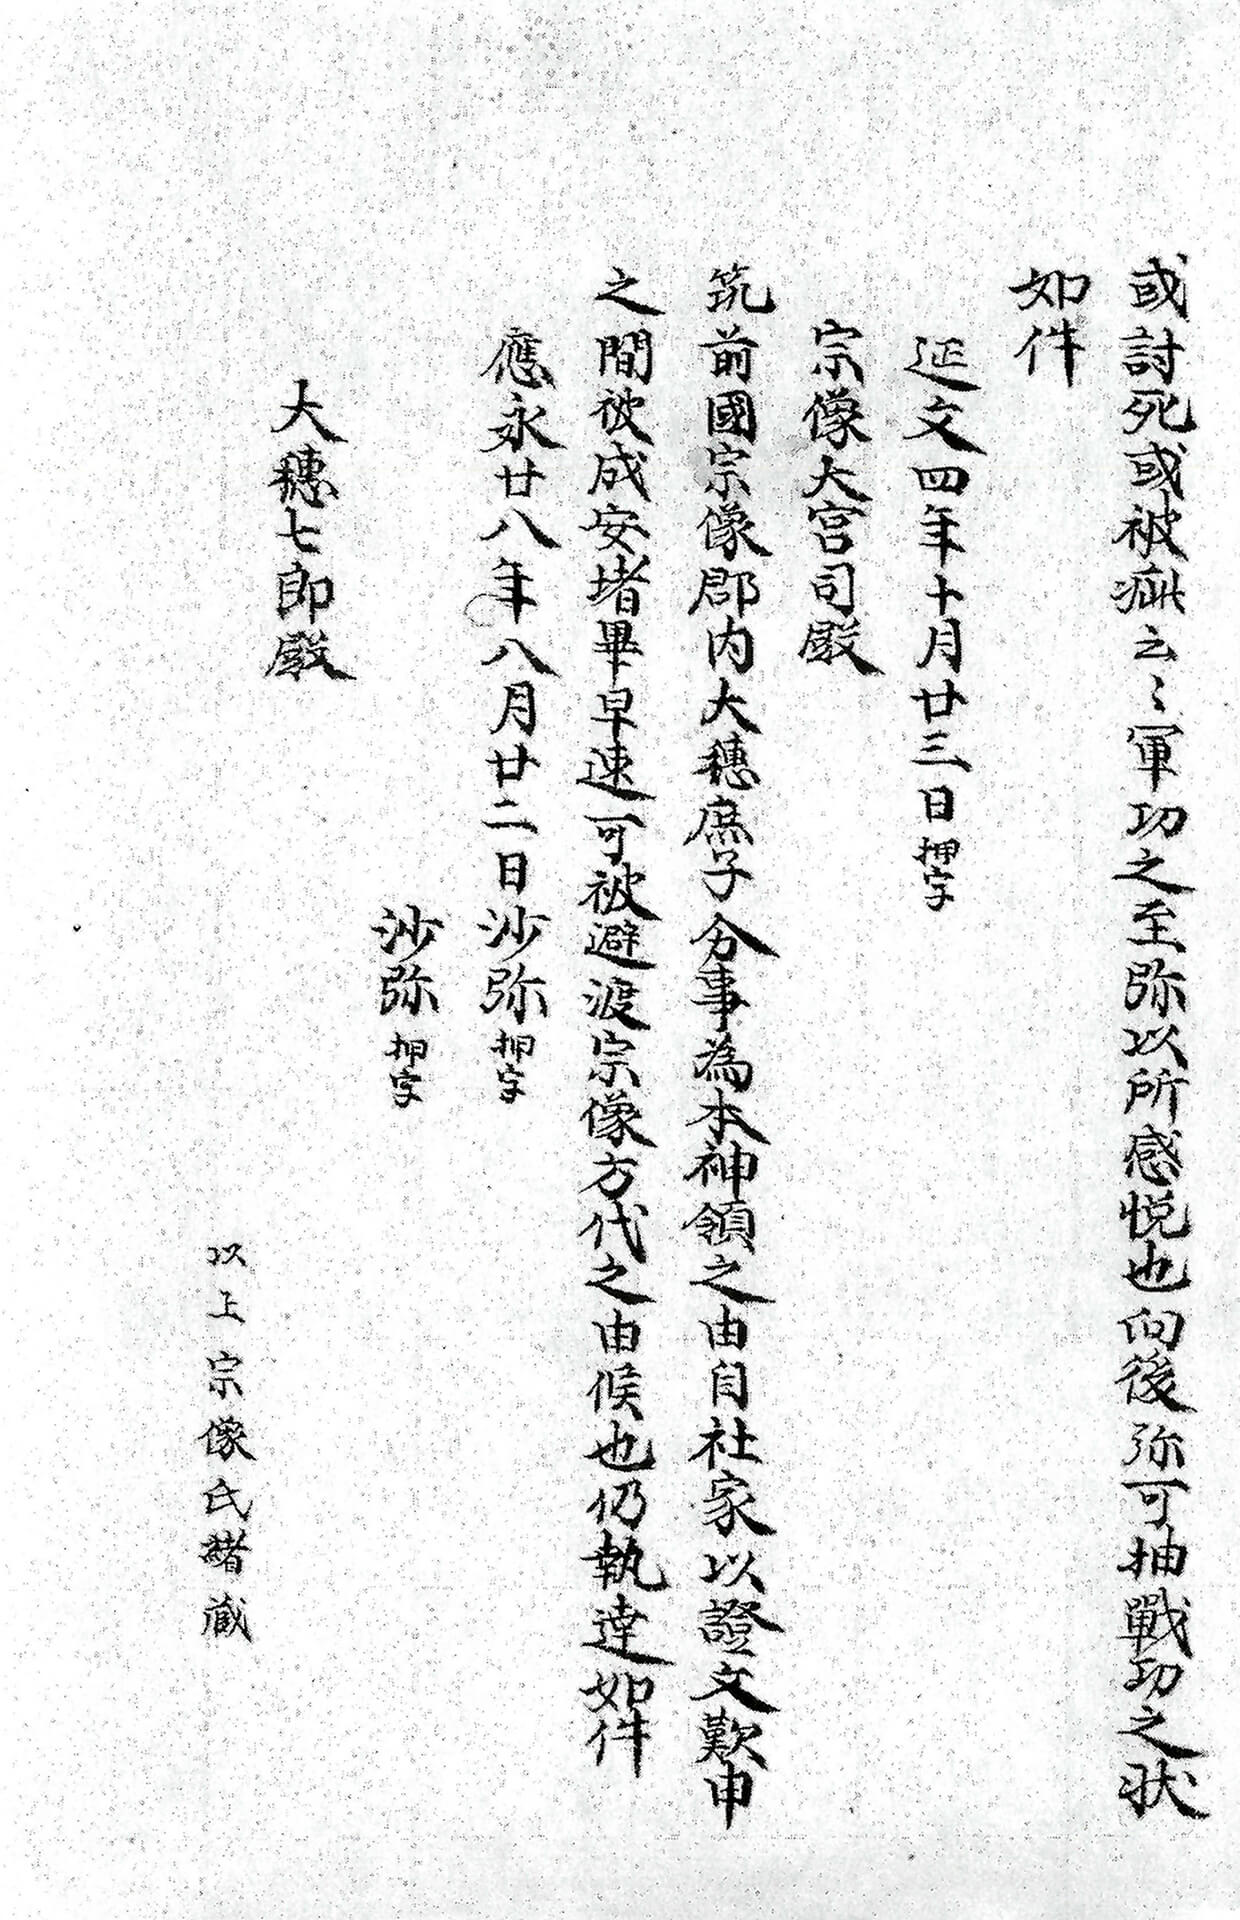 或討死或被疵云〻軍功之至弥以所感悦也向後弥可抽戰功之状
如件
延文四年十月廿三日押字
宗像大宮司殿
筑前國宗像郡内大穗庶子分事為本神領之由自社家以證文歎申
之間被成安堵畢早速可被避渡宗像方代之由候也仍執達如件
應永廿八年八月廿二日沙弥押字
沙弥押字
大穗七郎殿
以上宗像氏緒蔵